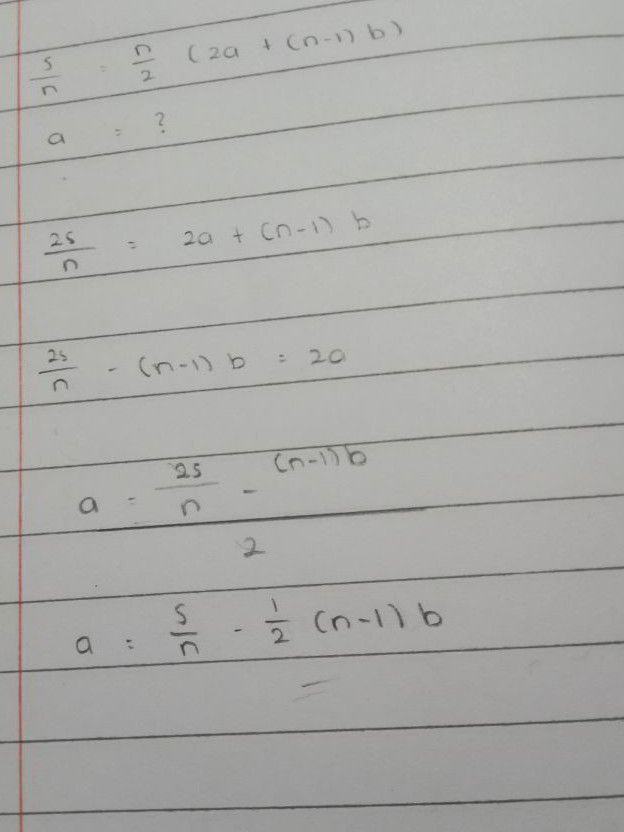 s/n = n/2 (2a + (n-1) b)
a = ?
2s/n = 2a + (n-1) b
2s/n - (n-1) b = 2a
a = 2s/n - (n-1)b
2
a = s/n - 1/2 (n-1) b
=